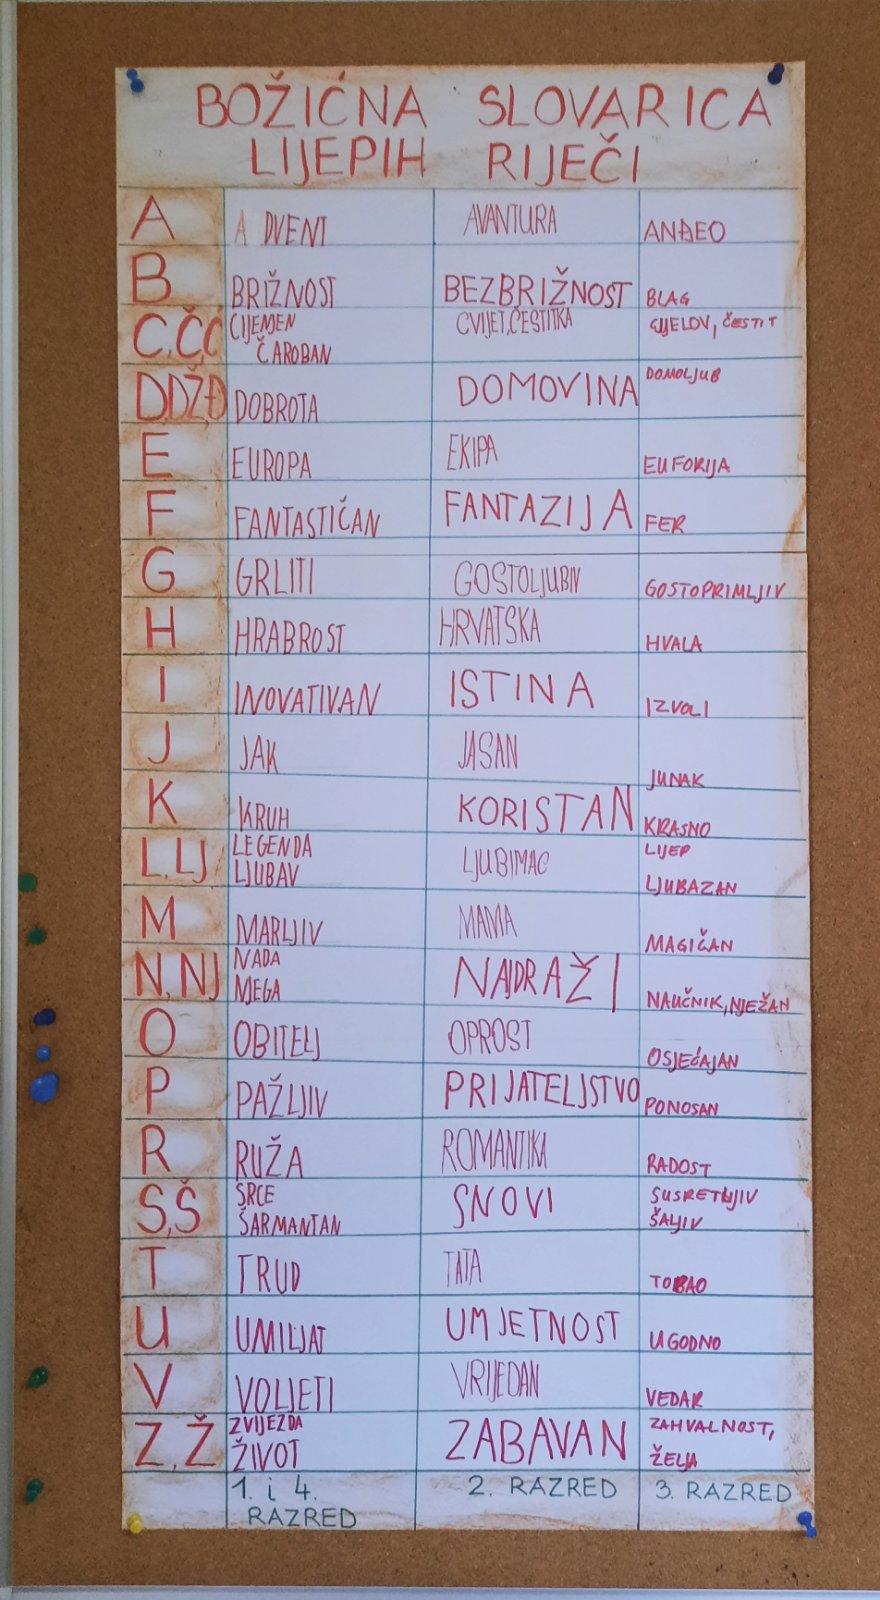 BOŽIĆNA SLOVARICA
LIJEPIH RIJEČI
A ADVENT AVANTURA ANĐEO
B BRIŽNOST BEZBRIŽNOST BLAG
C,Č,Ć CIJENJEN CVIJET,ČESTITKA CJELOV, ČESTIT
ČAROBAN
D,DŽ,Đ DOBROTA DOMOVINA DOMOLJUB
E EUROPA EKIPA EUFORIJA
F FANTASTIČAN FANTAZIJA FER
G GRLITI GOSTOLJUBIV GOSTOPRIMLJIV
H HRABROST HRVATSKA HVALA
I INOVATIVAN ISTINA IZVOLI
J JAK JASAN JUNAK
K KRUH KORISTAN KRASNO
L,LJ LEGENDA LJUBIMAC LIJEP
LJUBAV LJUBAZAN
M MARLJIV MAMA MAGIČAN
N,NJ NADA NAJDRAŽI NAUČNIK,NJEŽAN
NJEGA
O OBITELJ OPROST OSJEĆAJAN
P PAŽLJIV PRIJATELJSTVO PONOSAN
R RUŽA ROMANTIKA RADOST
S,Š SRCE SNOVI SUSRETLJIV
ŠARMANTAN ŠALJIV
T TRUD TATA TOBAO
U UMILJAT UMJETNOST UGODNO
V VOLJETI VRIJEDAN VEDAR
Z,Ž ZVIJEZDA ZABAVAN ZAHVALNOST,
ŽIVOT ŽELJA
1. i 4. 2. RAZRED 3. RAZRED
RAZRED